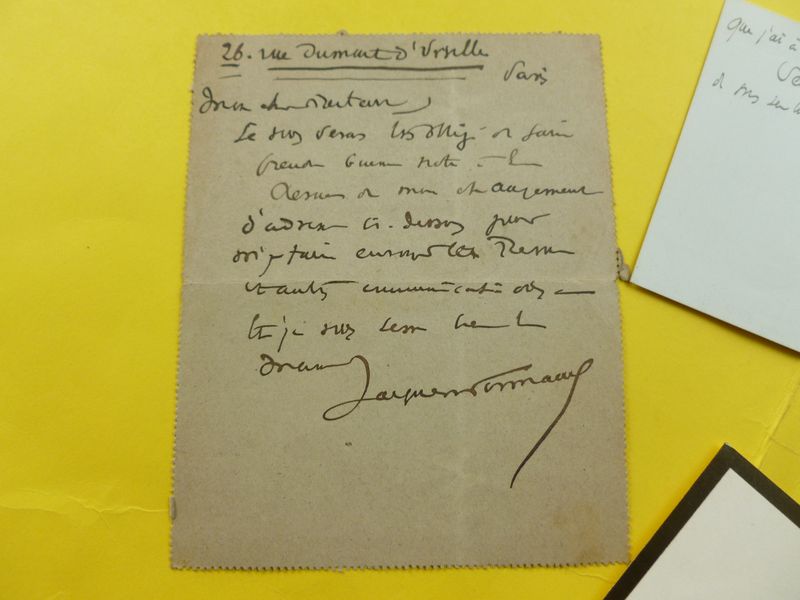 26. rue Dumont d'Urville
Paris
Mon cher Directeur,
Je vous serais très obligé de faire
prendre bonne note à la
Revue de mon changement
d'adresse ci-dessus pour
m'y faire envoyer les Revues
et autres communications
et je vous
Jacques Normand
que j'ai à
de mes